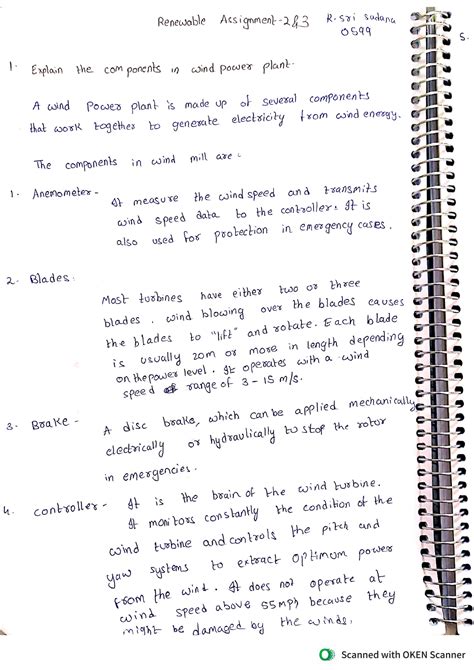 Renewable Assignment-2&3 R. Sri Sadana
0599
5.
1. Explain the components in wind power plant.
A wind power plant is made up of several components
that work together to generate electricity from wind energy.
The components in wind mill are.
1. Anemometer - It measure the wind speed and transmits
wind speed data to the controller. It is
also used for protection in emergency cases.
2. Blades:
Most turbines have either two or three
blades. wind blowing over the blades causes
the blades to "lift" and rotate. Each blade
is usually 20m or more in length depending
on the power level. It operates with a wind
speed range of 3 - 15 m/s.
3. Brake - A disc brake, which can be applied mechanically
electrically or hydraulically to stop the rotor
in emergencies.
4. controller - It is the brain of the wind turbine.
It monitors constantly the condition of the
wind turbine and controls the pitch and
yaw systems to extract optimum power
from the wind. It does not operate at
wind speed above 55mph because they
might be damaged by the winds.
Scanned with OKEN Scanner